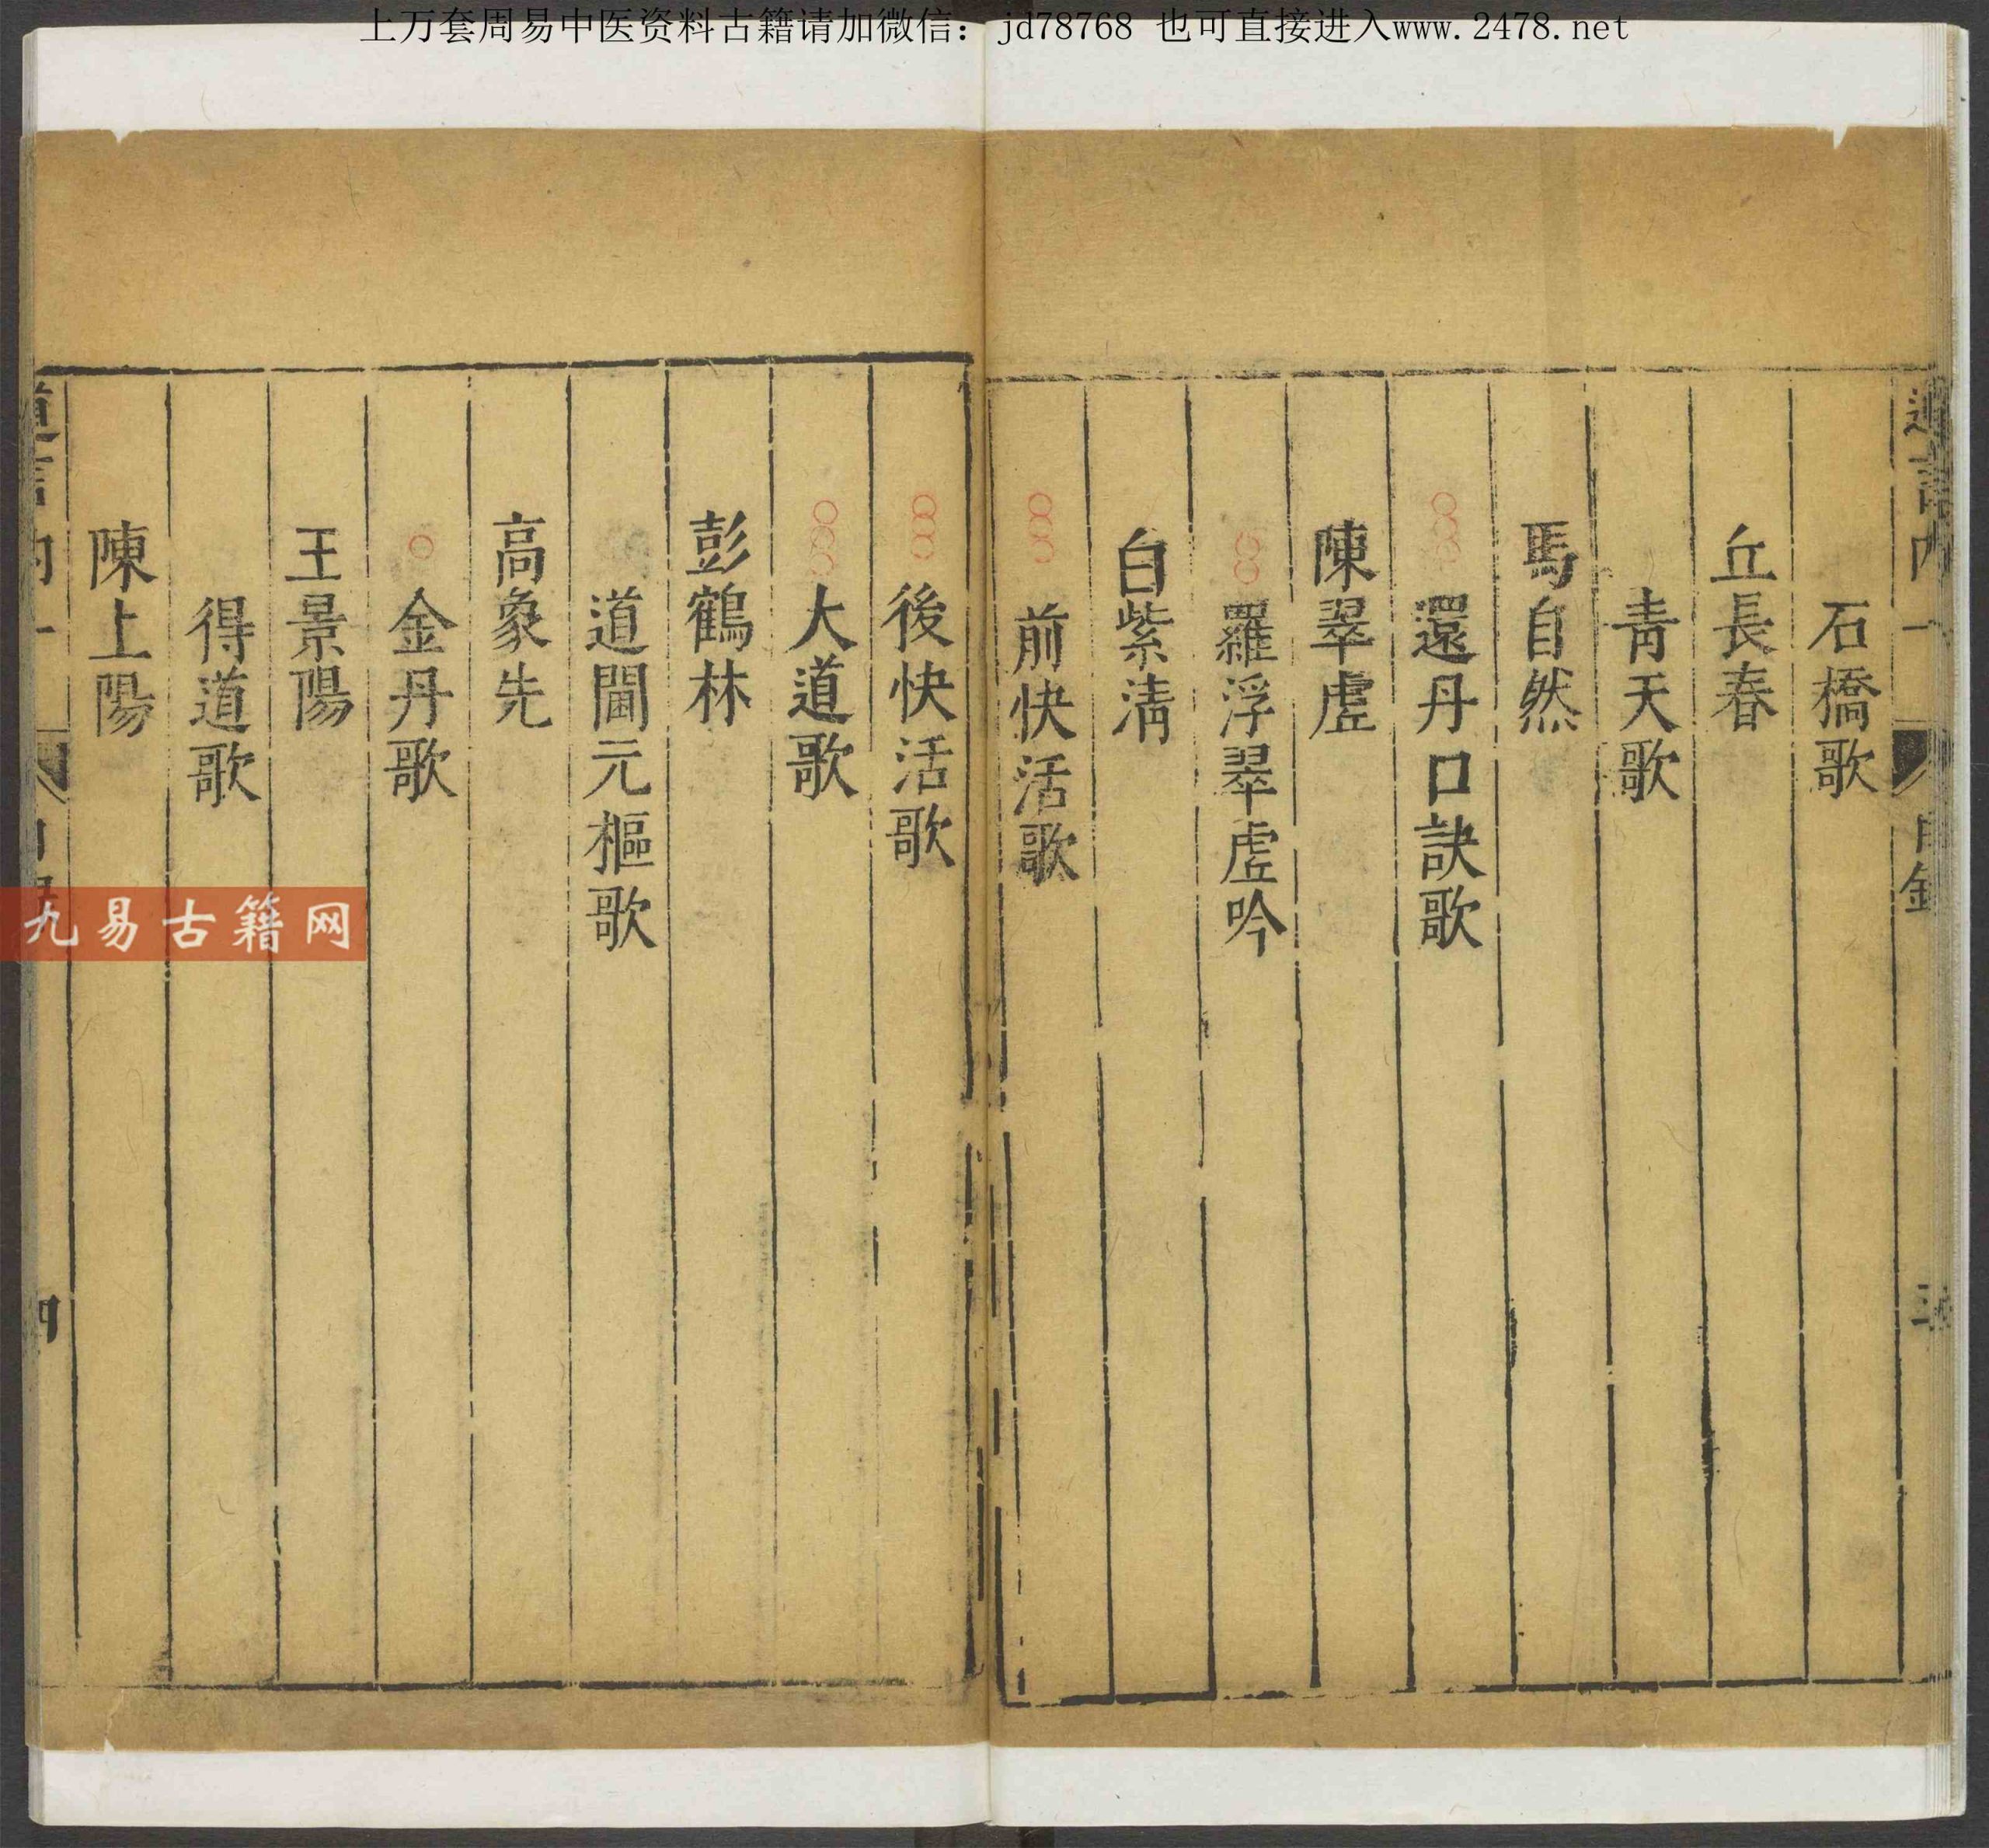 上万套周易中医资料古籍请加微信：jd78768 也可直接进入www.2478.net
道言內 一 目錄 三
石橋歌
丘長春
青天歌
馬自然
還丹口訣歌
陳翠虛
羅浮翠虛吟
白紫清
前快活歌
後快活歌
大道歌
彭鶴林
道閫元樞歌
高象先
金丹歌
王景陽
得道歌
陳上陽
道言內 一 目 四
九易古籍网